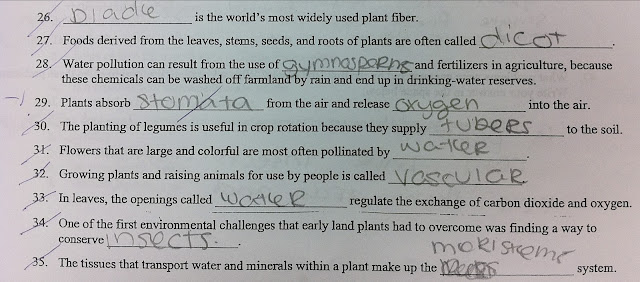 26. Blade is the world's most widely used plant fiber.
27. Foods derived from the leaves, stems, seeds, and roots of plants are often called dicot.
28. Water pollution can result from the use of gymnosperns and fertilizers in agriculture, because
these chemicals can be washed off farmland by rain and end up in drinking-water reserves.
-1 29. Plants absorb stomata from the air and release oxygen into the air.
30. The planting of legumes is useful in crop rotation because they supply tubers to the soil.
31. Flowers that are large and colorful are most often pollinated by water.
32. Growing plants and raising animals for use by people is called vascular.
33. In leaves, the openings called water regulate the exchange of carbon dioxide and oxygen.
34. One of the first environmental challenges that early land plants had to overcome was finding a way to
conserve insects.
meristems
35. The tissues that transport water and minerals within a plant make up the system.